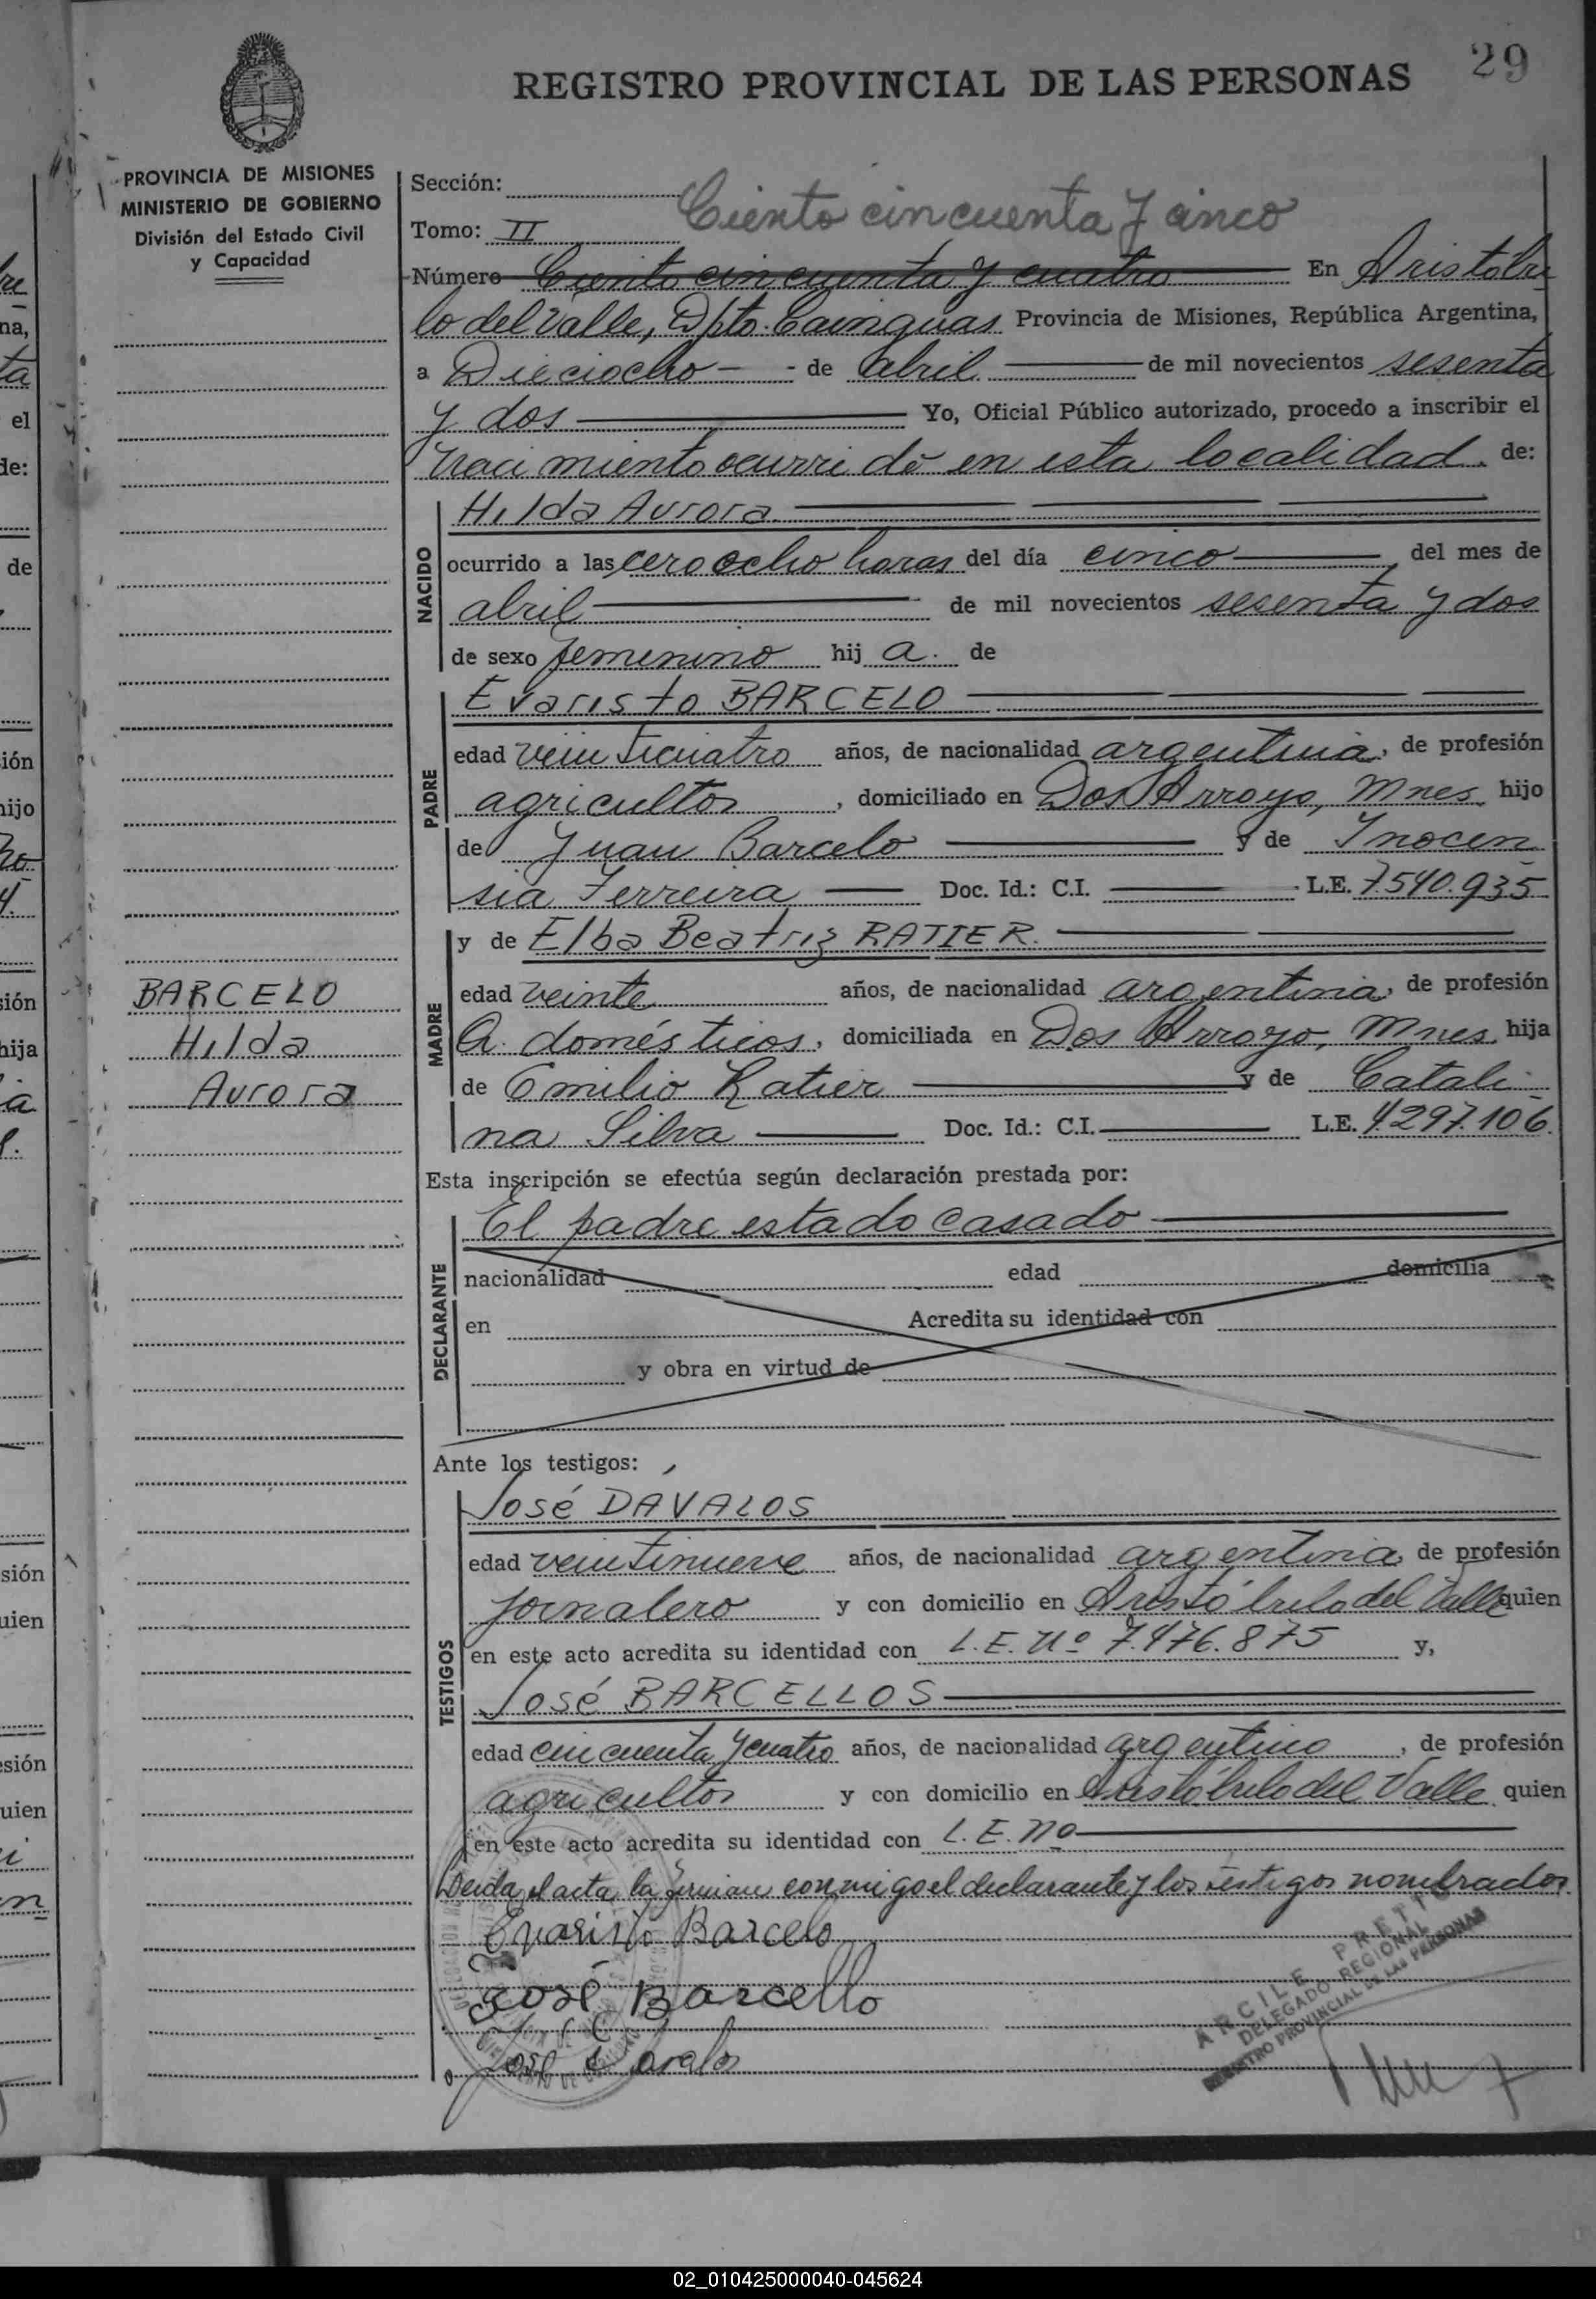 29
REGISTRO PROVINCIAL DE LAS PERSONAS
PROVINCIA DE MISIONES
MINISTERIO DE GOBIERNO
División del Estado Civil
y Capacidad
Sección:
Ciento cincuenta y cinco
Tomo: II
Número Ciento cincuenta y cuatro En Aristobu
lo del Valle, Dpto. Cainguas Provincia de Misiones, República Argentina,
a Dieciocho - - de abril de mil novecientos sesenta
y dos Yo, Oficial Público autorizado, procedo a inscribir el
nacimiento ocurrido en esta localidad de:
NACIDO
Hilda Aurora
ocurrido a las cero ocho horas del día cinco del mes de
abril de mil novecientos sesenta y dos
de sexo femenino hij a. de
PADRE
Evaristo BARCELO
edad veinticuatro años, de nacionalidad argentina, de profesión
agricultor, domiciliado en Dos Arroyo, Mnes, hijo
de Juan Barcelo y de Ynocen
sia Ferreira Doc. Id.: C.I. L.E. 7.540.935
MADRE
y de Elba Beatriz RATIER.
edad veinte años, de nacionalidad argentina, de profesión
A. domésticos, domiciliada en Dos Arroyo, Mnes, hija
de Emilio Ratier y de Catali
na Silva Doc. Id.: C.I. L.E. 4.297.106
BARCELO
Hilda
Aurora
Esta inscripción se efectúa según declaración prestada por:
DECLARANTE
El padre estado casado
nacionalidad edad domicilia
en Acredita su identidad con
y obra en virtud de
Ante los testigos:
TESTIGOS
José DAVALOS
edad veintinueve años, de nacionalidad argentina, de profesión
jornalero y con domicilio en Aristóbulo del Valle quien
en este acto acredita su identidad con L.E. Nº 7.476.875 y,
José BARCELLOS
edad cincuenta y cuatro años, de nacionalidad argentino, de profesión
agricultor y con domicilio en Aristóbulo del Valle quien
en este acto acredita su identidad con L.E. nº
Leida el acta la firman conmigo el declarante y los testigos nombrados
Evaristo Barcelo
José Barcello
José Davalos
ARCILE PRETTO
DELEGADO REGIONAL
REGISTRO PROVINCIAL DE LAS PERSONAS
02_010425000040-045624